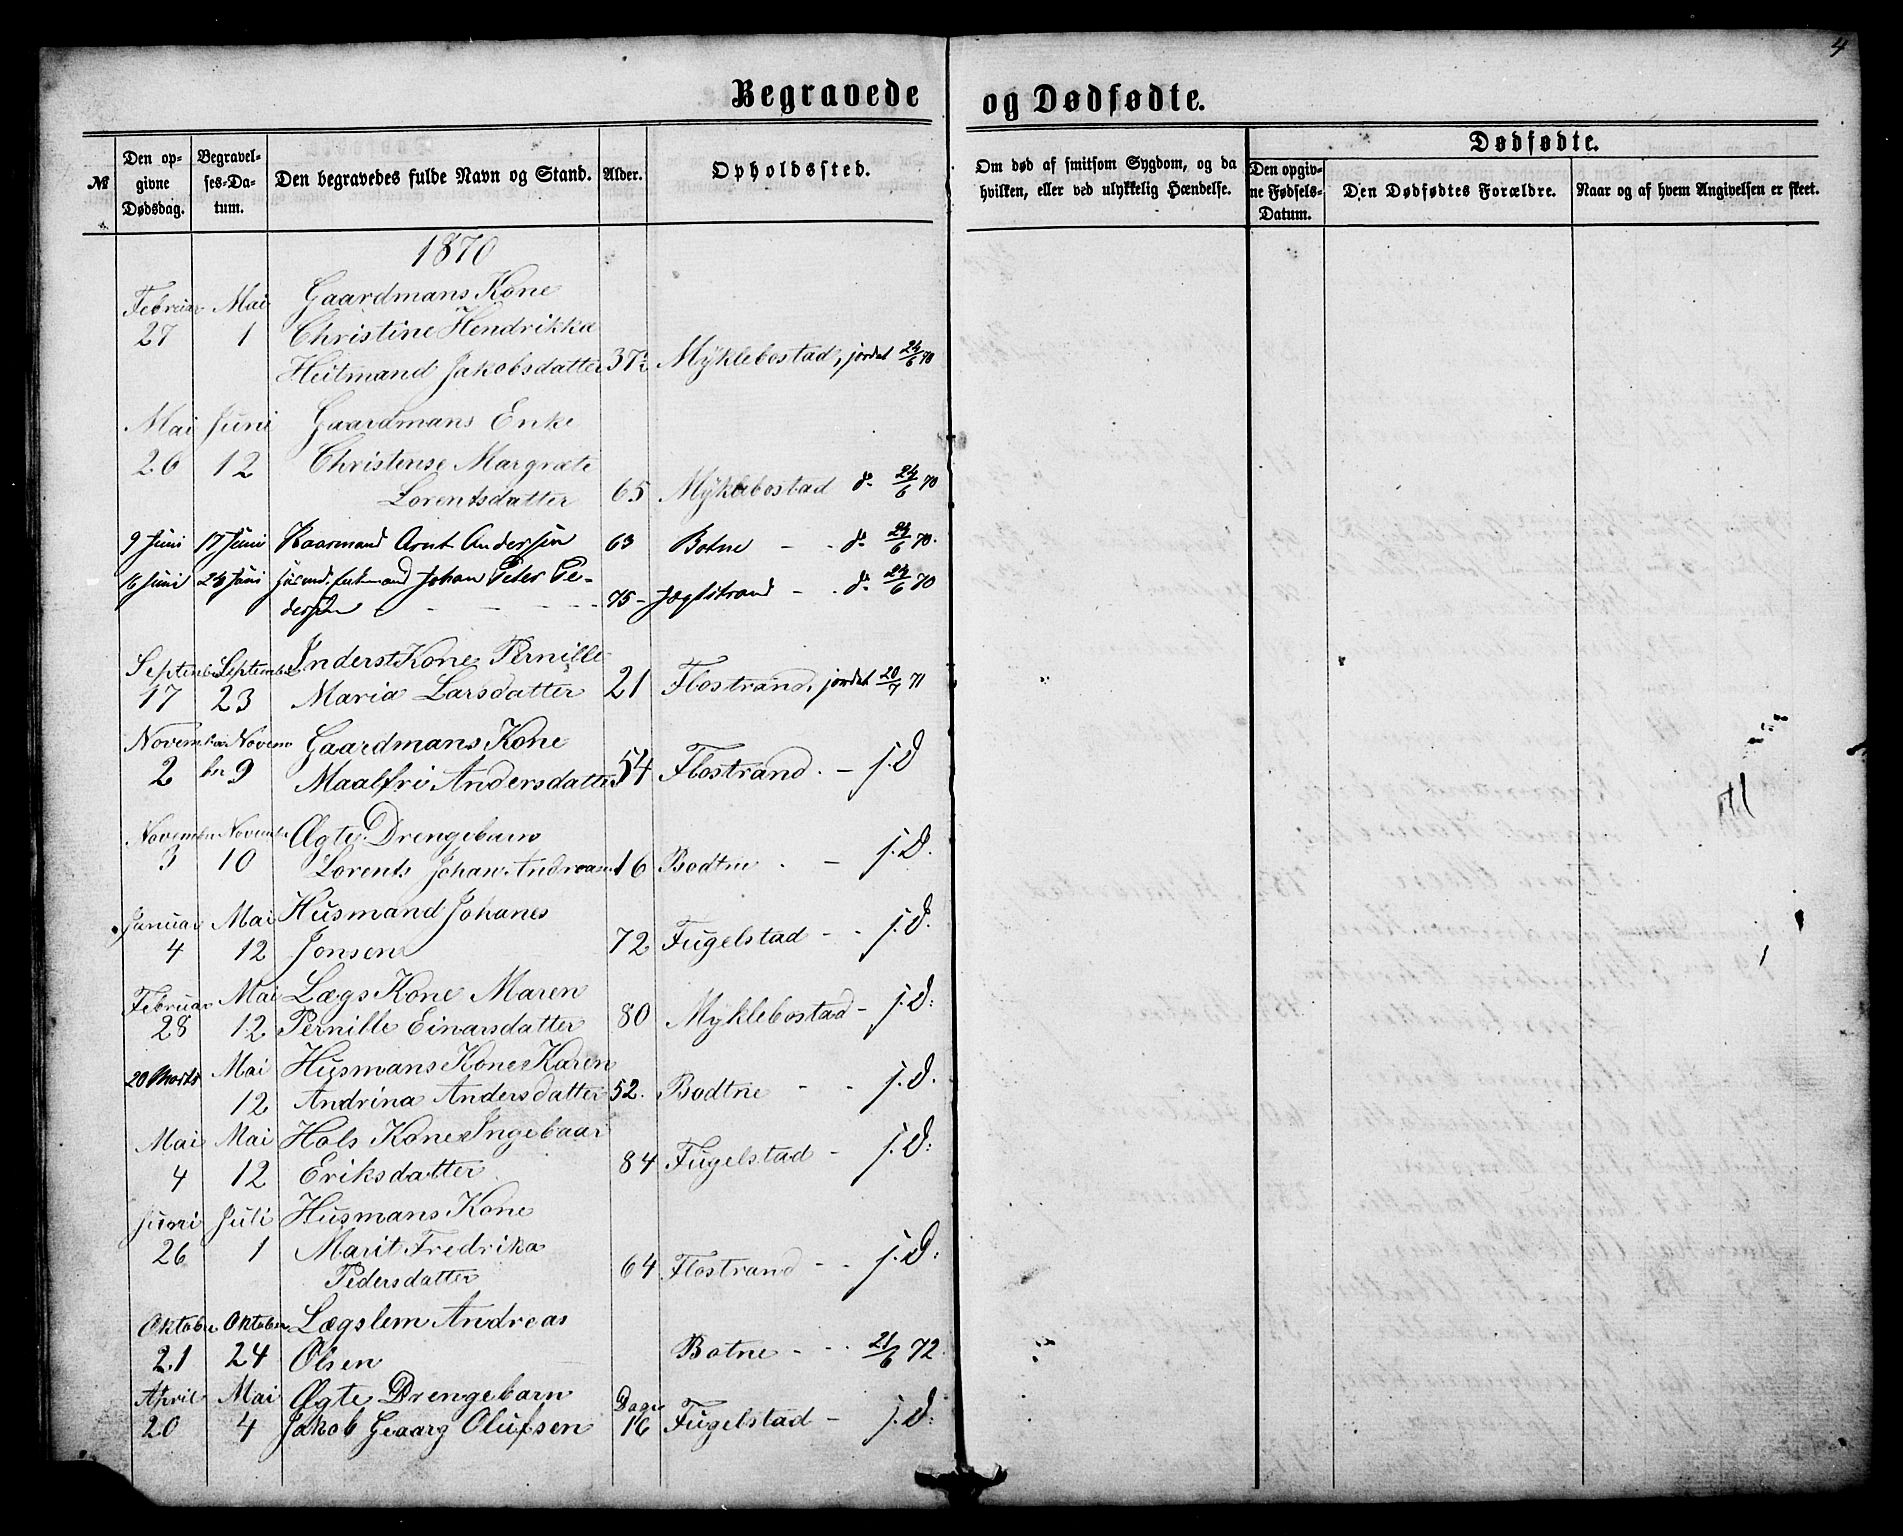 4
Begravede og Dødfødte.
№
Den opgivne Dødsdag.
Begravelses-Datum.
Den begravedes fulde Navn og Stand.
Alder.
Opholdssted.
Om død af smitsom Sygdom, og da hvilken, eller ved ulykkelig Hændelse.
Dødfødte.
Den opgivne Fødsels-Datum.
Den Dødfødtes Forældre.
Naar og af hvem Angivelsen er skeet.
1870
Februar Mai Gaardmans Kone
27 1 Christine Hendrikka
Heitmand Jakobsdatter 37 Mÿklebostad, jordet 24/6 70
Mai Juni Gaardmans Enke
26 12 Christense Margræte
Lorentsdatter 65 Mÿklebostad do 24/6 70
9 Juni 17 Juni Kaarmand Arnt Andersen 63 Botne - - do 24/6 70.
16 Juni 24 Juni Johan Peter Pe-
dersen - - - 75 - Jegtstrand - - do 24/6 70
September September Inderst Kone Pernille
17 23 Maria Larsdatter 21 Flostrand, jordet 20/7 71
November Novem Gaardmans Kone
2 ber 9 Maalfri Andersdatter 54 Flostrand. - j. D
November November Ægte Drengebarn
3 10 Lorents Johan 16 Bodtne - - j. D.
Januar Mai Husmand Johanes
4 12 Jonsen 72 Fugelstad - - j. D.
Februar Mai Lægs Kone Maren
28 12 Pernille Einarsdatter 80 Myklebostad - j. D:
20 Marts Mai Husmans Kone Karen
12 Andrina Andersdatter 52. Bodtne - - j. D.
Mai Mai Hols Kone Ingebaar
4 12 Eriksdatter 84 Fugelstad - j. D:
Juni Juli Husmans Kone
26 1 Marit Fredrika
Pedersdatter 64 Flostrand - - j. D:
Oktober Oktober Lægslem Andreas
21 24 Olsen Botne - - - 21/6 72.
April Mai Ægte Drengebarn Dage
20 4 Jakob Geaarg Olufsen 16 Fugelstad - j. D: